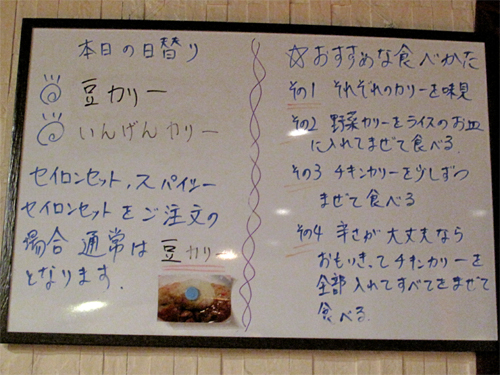 本日の日替り
豆カリー
いんげんカリー
セイロンセット,スパイシー
セイロンセットをご注文の
場合 通常は 豆カリー
となります.
☆おすすめな食べかた
その1 それぞれのカリーを味見
その2 野菜カリーをライスのお皿
に入れてまぜて食べる.
その3 チキンカリーを少しずつ
まぜて食べる
その4 辛さが大丈夫なら
おもいきってチキンカリーを
全部入れてすべてをまぜて
食べる.